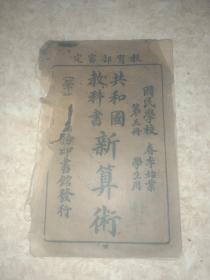 教育部審定
國民學校 春季始業
第五冊 學生用
共和國
教科書
新算術
印書館發行